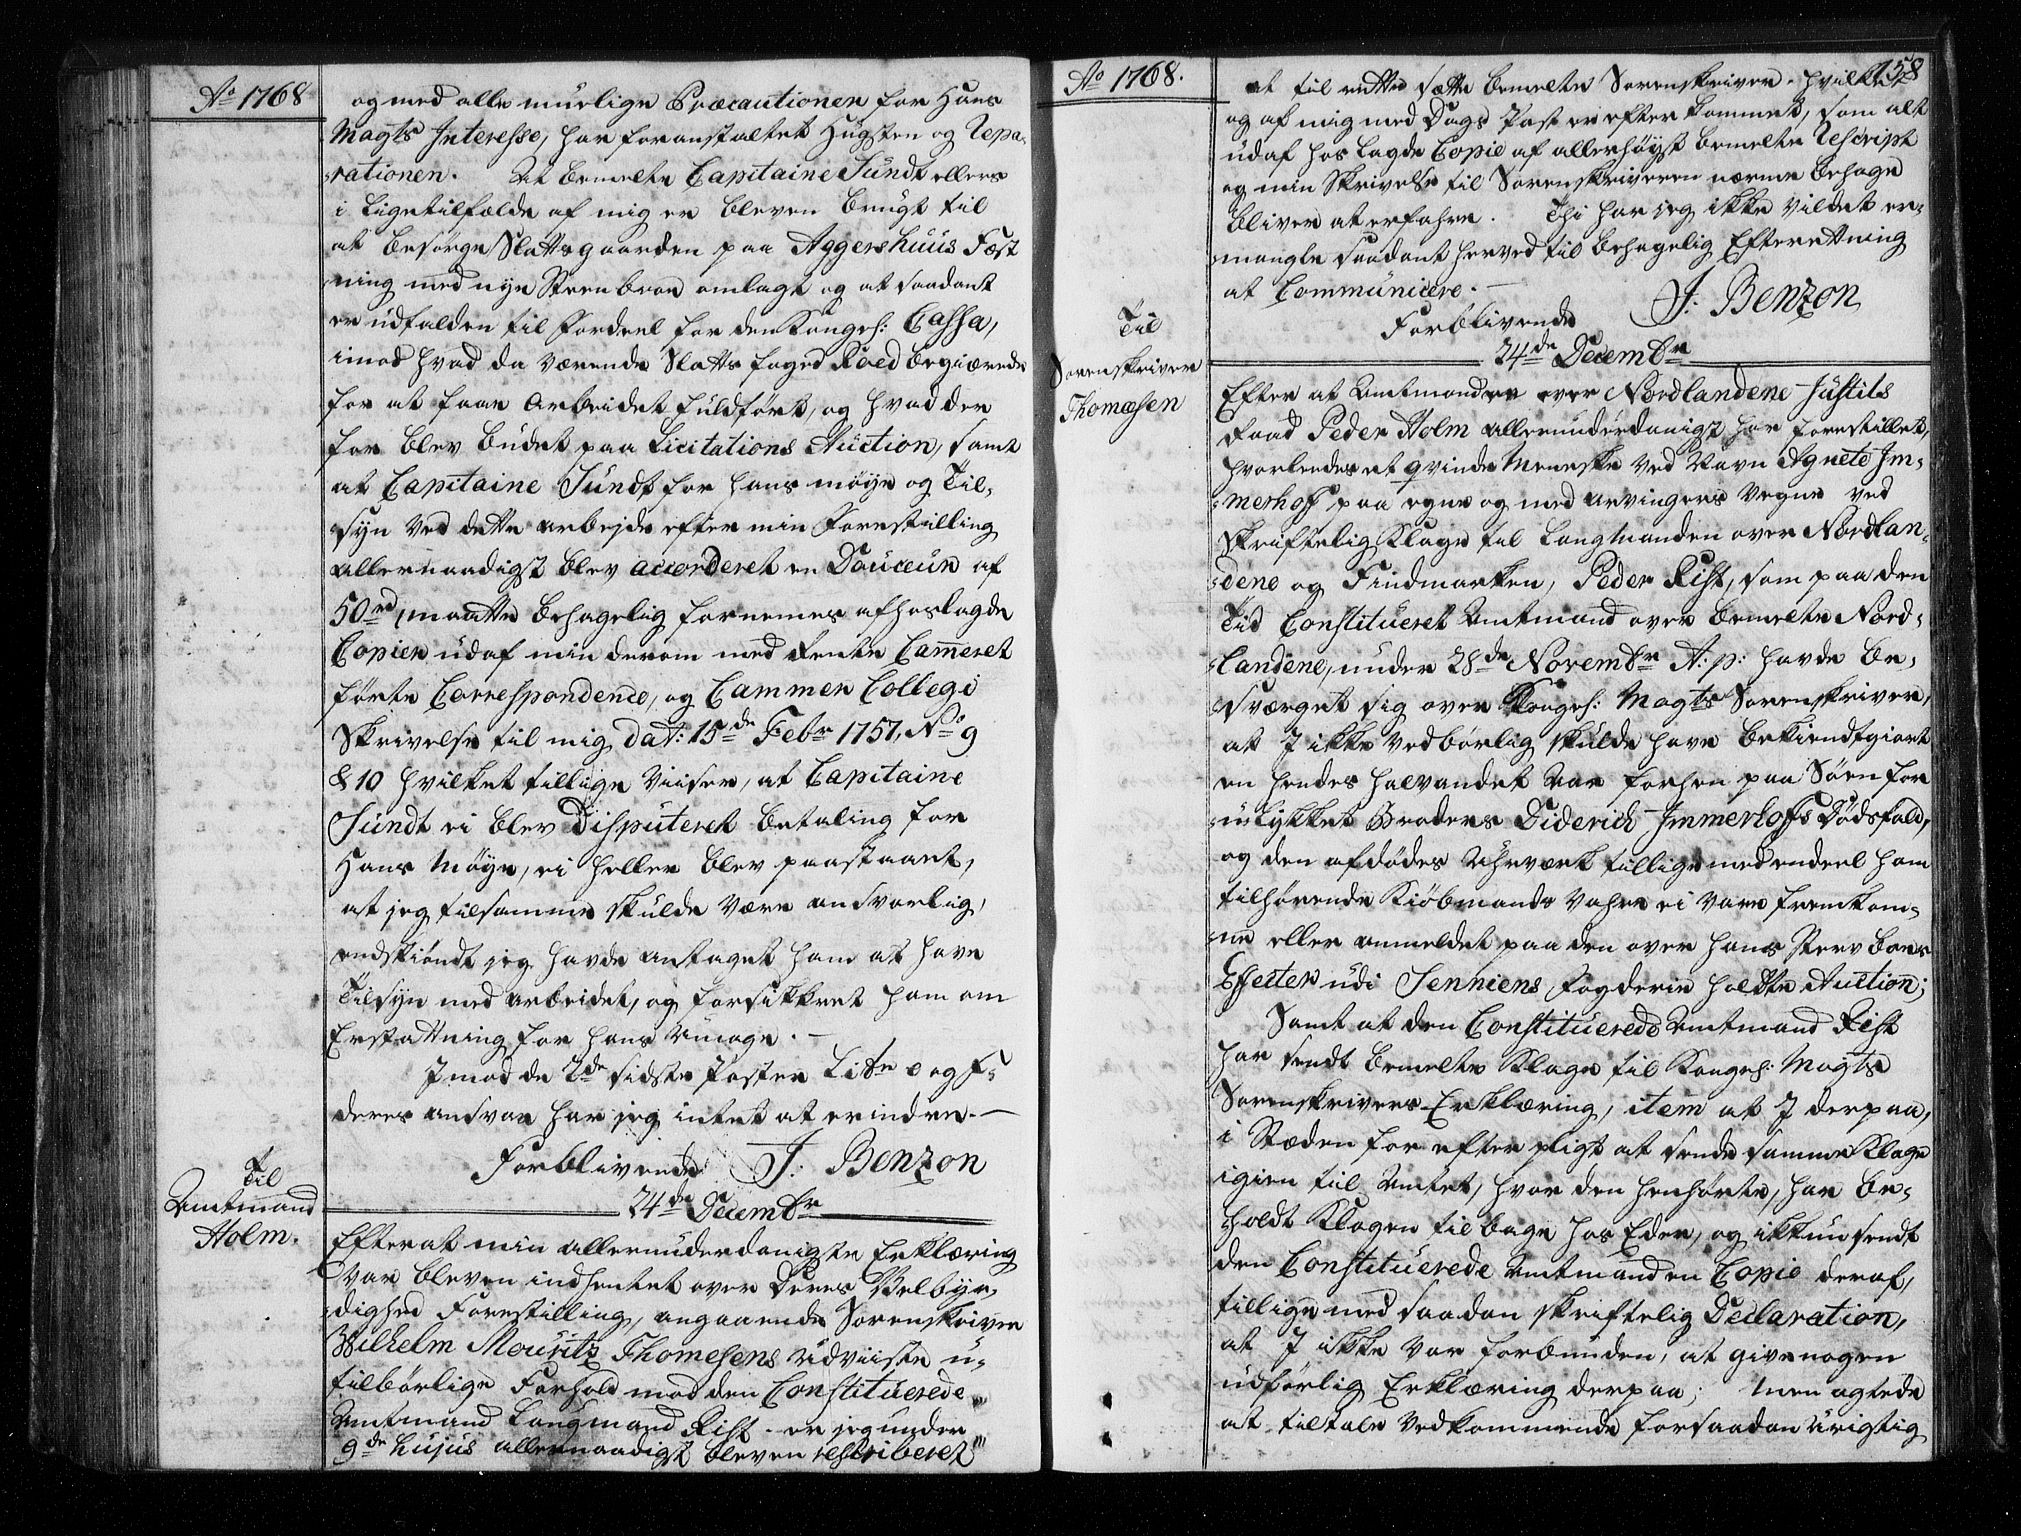 Ao 1768
og med alle muelige Præcautioner for Hans
Mayts Interesse, har foranstaltet Hugsten og Repa-
rationen. At bemelte Capitaine Sundt ellers
i Ligetilfælde af mig er bleven brugt til
at besørge Slottsgaarden paa Aggershuus Fæst
ning med nye Steenbroe omlagt og at saadant
er udfalden til Fordeel for den Kongel: Cassa,
imod hvad da værende Slotts foged Roed begiærede
for at faae Arbeidet fuldført, og hvad der
for blev budet paa Licitations Auction, samt
at Capitaine Sundt for hans møye og Til-
syn ved dette arbejde efter min Forestilling
allernaadigst blev accorderet en Douceur af
50rd, maatte behagelig fornemmes af hoslagde
Copier udaf min derom med Rente Cameret
førte Correspondence, og Cammer Collegi
Skrivelse til mig dat: 15de Febr 1757, No 9
& 10 hvilket tillige viiser, at Capitaine
Sundt ei blev disputeret betaling for
Hans Møye, ei heller blev paastaaet,
at jeg tilsamme skulde være ansvarlig,
endskiøndt jeg havde antaget ham at have
Tilsyn med arbeidet, og forsikkret ham om
Erstattning for hans Umage. —
Imod de 2de sidste Poster Litr e og F:
deres ansvar har jeg intet at erindre. —
Forblivende J: Benzon
24de Decembr
Til
Amtmand
Holm.
Efterat min allerunderdanigste Erklæring
var bleven indhentet over Deres Velbyr-
dighed Forestilling, angaaende Sorenskriver
Wilhelm Mouritz Thomesens udviiste u-
tilbørlige Forhold mod den Constituerede
Amtmand Laugmand Rist. er jeg under
9de hujus allernaadigst bleven rescriberet
Ao 1768.
158
at til rette sætte bemelte Sorenskriver. hvilket
og af mig med Dags Post er efterkommet, som alt
udaf hoslagde Copie af allerhøyst bemelte Rescript
og min Skrivelse til Sorenskriveren nærme behage
bliver at erfahre. Thi har jeg ikke vildet er-
mangle saadant herved til behagelig Efterettning
at Communicere. —
Forblivende J: Benzon
24de Decembr
Til
Sorenskriver
Thomæsen
Efter at Amtmanden over Nordlandene Justits
Raad Peder Holm allerunderdanigst har forestillet,
hvorledes et qvinde Menneske ved Navn Agnete Im-
merhoff paa egne og med arvingers Vegne ved
Skriftelig Klage til Laugmanden over Nordlan-
dene og Findmarken, Peder Rist, som paa den
Tid Constitueret Amtmand over bemelte Nord-
landene, under 28de Novembr A: p: havde be-
sværget sig over Kongel: Mayts Sorenskriver,
at I ikke vedbørlig skulde have bekiendtgiort
en hendes halvandet Aar forhen paa Søen for
ulykket Broders Diderich Immerhoffs Dødsfald,
og den afdødes Uhrværk tillige med endeel ham
tilhørende Kiøbmands Vahre ei vare fremkom-
ne eller anmeldet paa den over hans Sterv boes
Effecter udi Senniens Fogderie holdte Auction;
Samt at den Constituerede Amtmand Rist
har sendt bemelte Klage til Kongel: Mayts
Sorenskrivers Erklæring, item at I derpaa,
i Stæden for efter pligt at sende samme Klage
igien til Amtet, hvor den henhørte, har be-
holdt Klagen tilbage hos Eder, og ikkun sendt
den Constituerede Amtmand en Copie deraf,
tillige med saadan skriftelig Declaration,
at I ikke var forbunden, at give nogen
udførlig Erklæring derpaa; men agtede
at tiltale Vedkommende for saadan urigtig